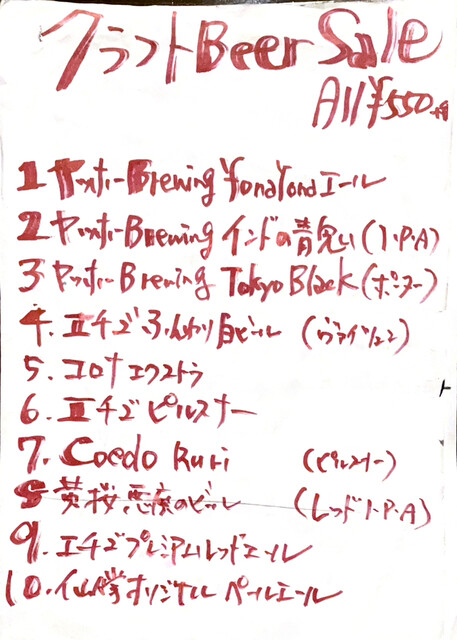 クラフトBeer Sale
All ¥550
1 ヤッホーBrewing YonaYonaエール
2 ヤッホーBrewing インドの青鬼 (I・P・A)
3 ヤッホーBrewing Tokyo Black (ポーター)
4. エチゴふんわり白ビール (ヴァイツェン)
5. コロナエクストラ
6. エチゴピルスナー
7. Coedo Ruri (ピルスナー)
8 黄桜 悪魔のビール (レッドI・P・A)
9. エチゴプレミアムレッドエール
10. オリジナル ペールエール